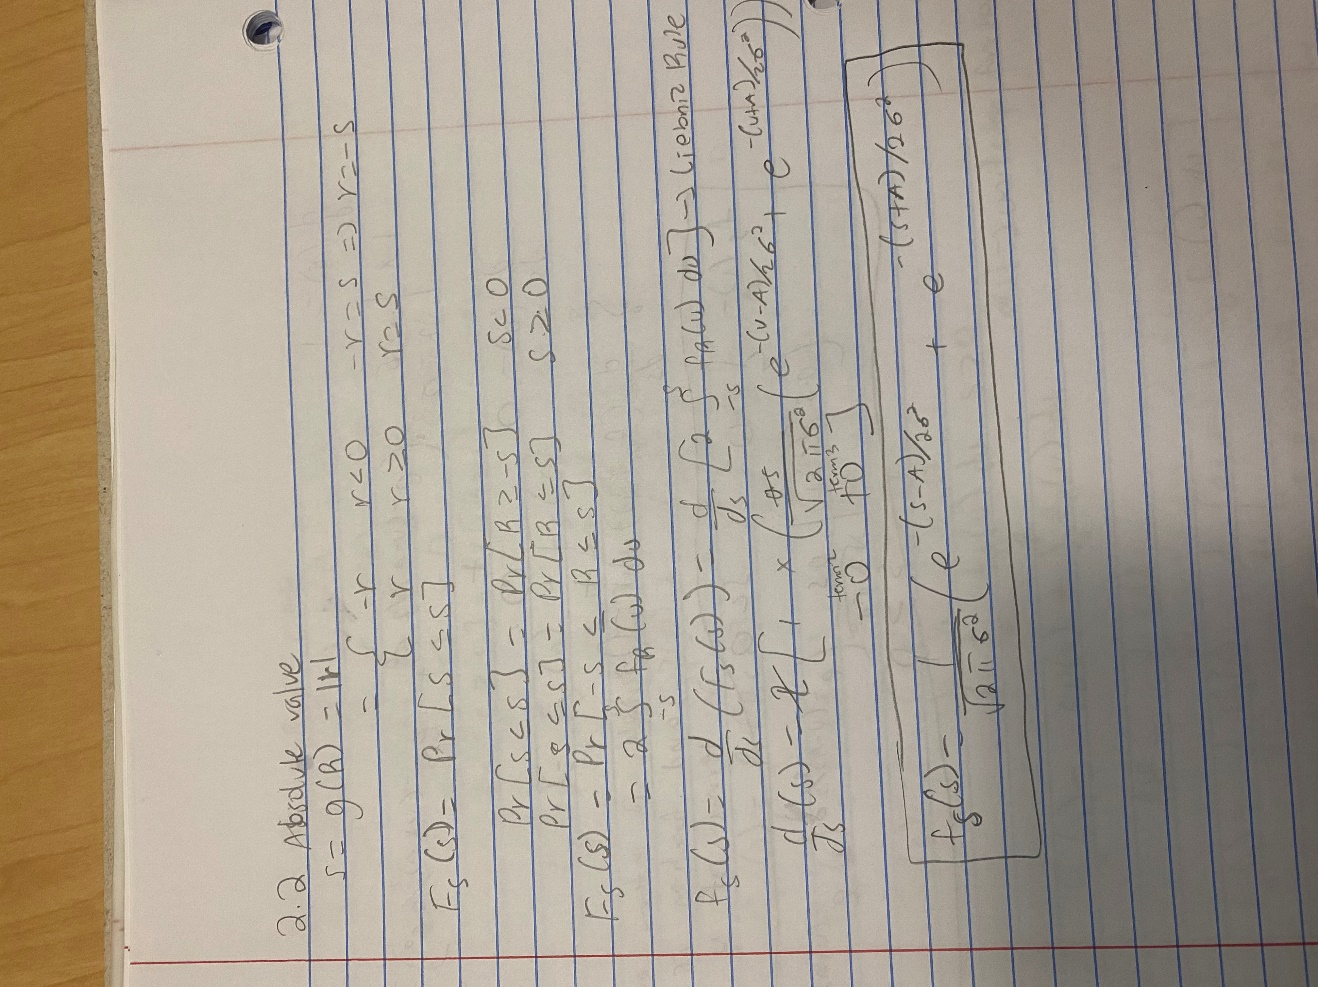 2.2 Absolute value
s = g(R) = |r|
= { -r r<0 -r=s => r=-s
{ r r≥0 r=s
Fs(s) = Pr[s ≤ s]
Pr[s<s] = Pr[R ≥ -s] s<0
Pr[s ≤ s] = Pr[R ≤ s] s≥0
Fs(s) = Pr[-s ≤ R ≤ s]
= 2 ∫_{-s}^{s} fR(u) du
fs(s) = d/ds (Fs(s)) = d/ds [2 ∫_{-s}^{s} fR(u) du] -> Liebniz Rule
d/ds (s) = [1 × ( /√2πσ² (e^{-(v-A)/2σ²} + e^{-(v+A)/2σ²}))
term2 term3
-0 +0]
fs(s) = 1/√2πσ² (e^{-(s-A)/2σ²} + e^{-(s+A)/2σ²})